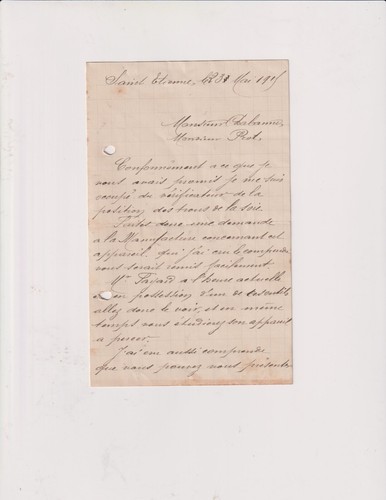 Saint Etienne, le 31 Mai 1915
Monsieur
Monsieur Prot.
Conformément a ce que je
vous avais promis je me suis
occupé du vérificateur de la
position des trous de la soie.
Faites donc une demande
a la Manufacture concernant cet
appareil qui j'ai cru comprendre
vous serait remis facilement.
Mr Fayard a l'heure actuelle
est en possession d'un de ces outils
allez donc le voir, et en même
temps vous étudierez son appareil
a percer.
J'ai cru aussi comprendre
que vous pouvez vous présenter